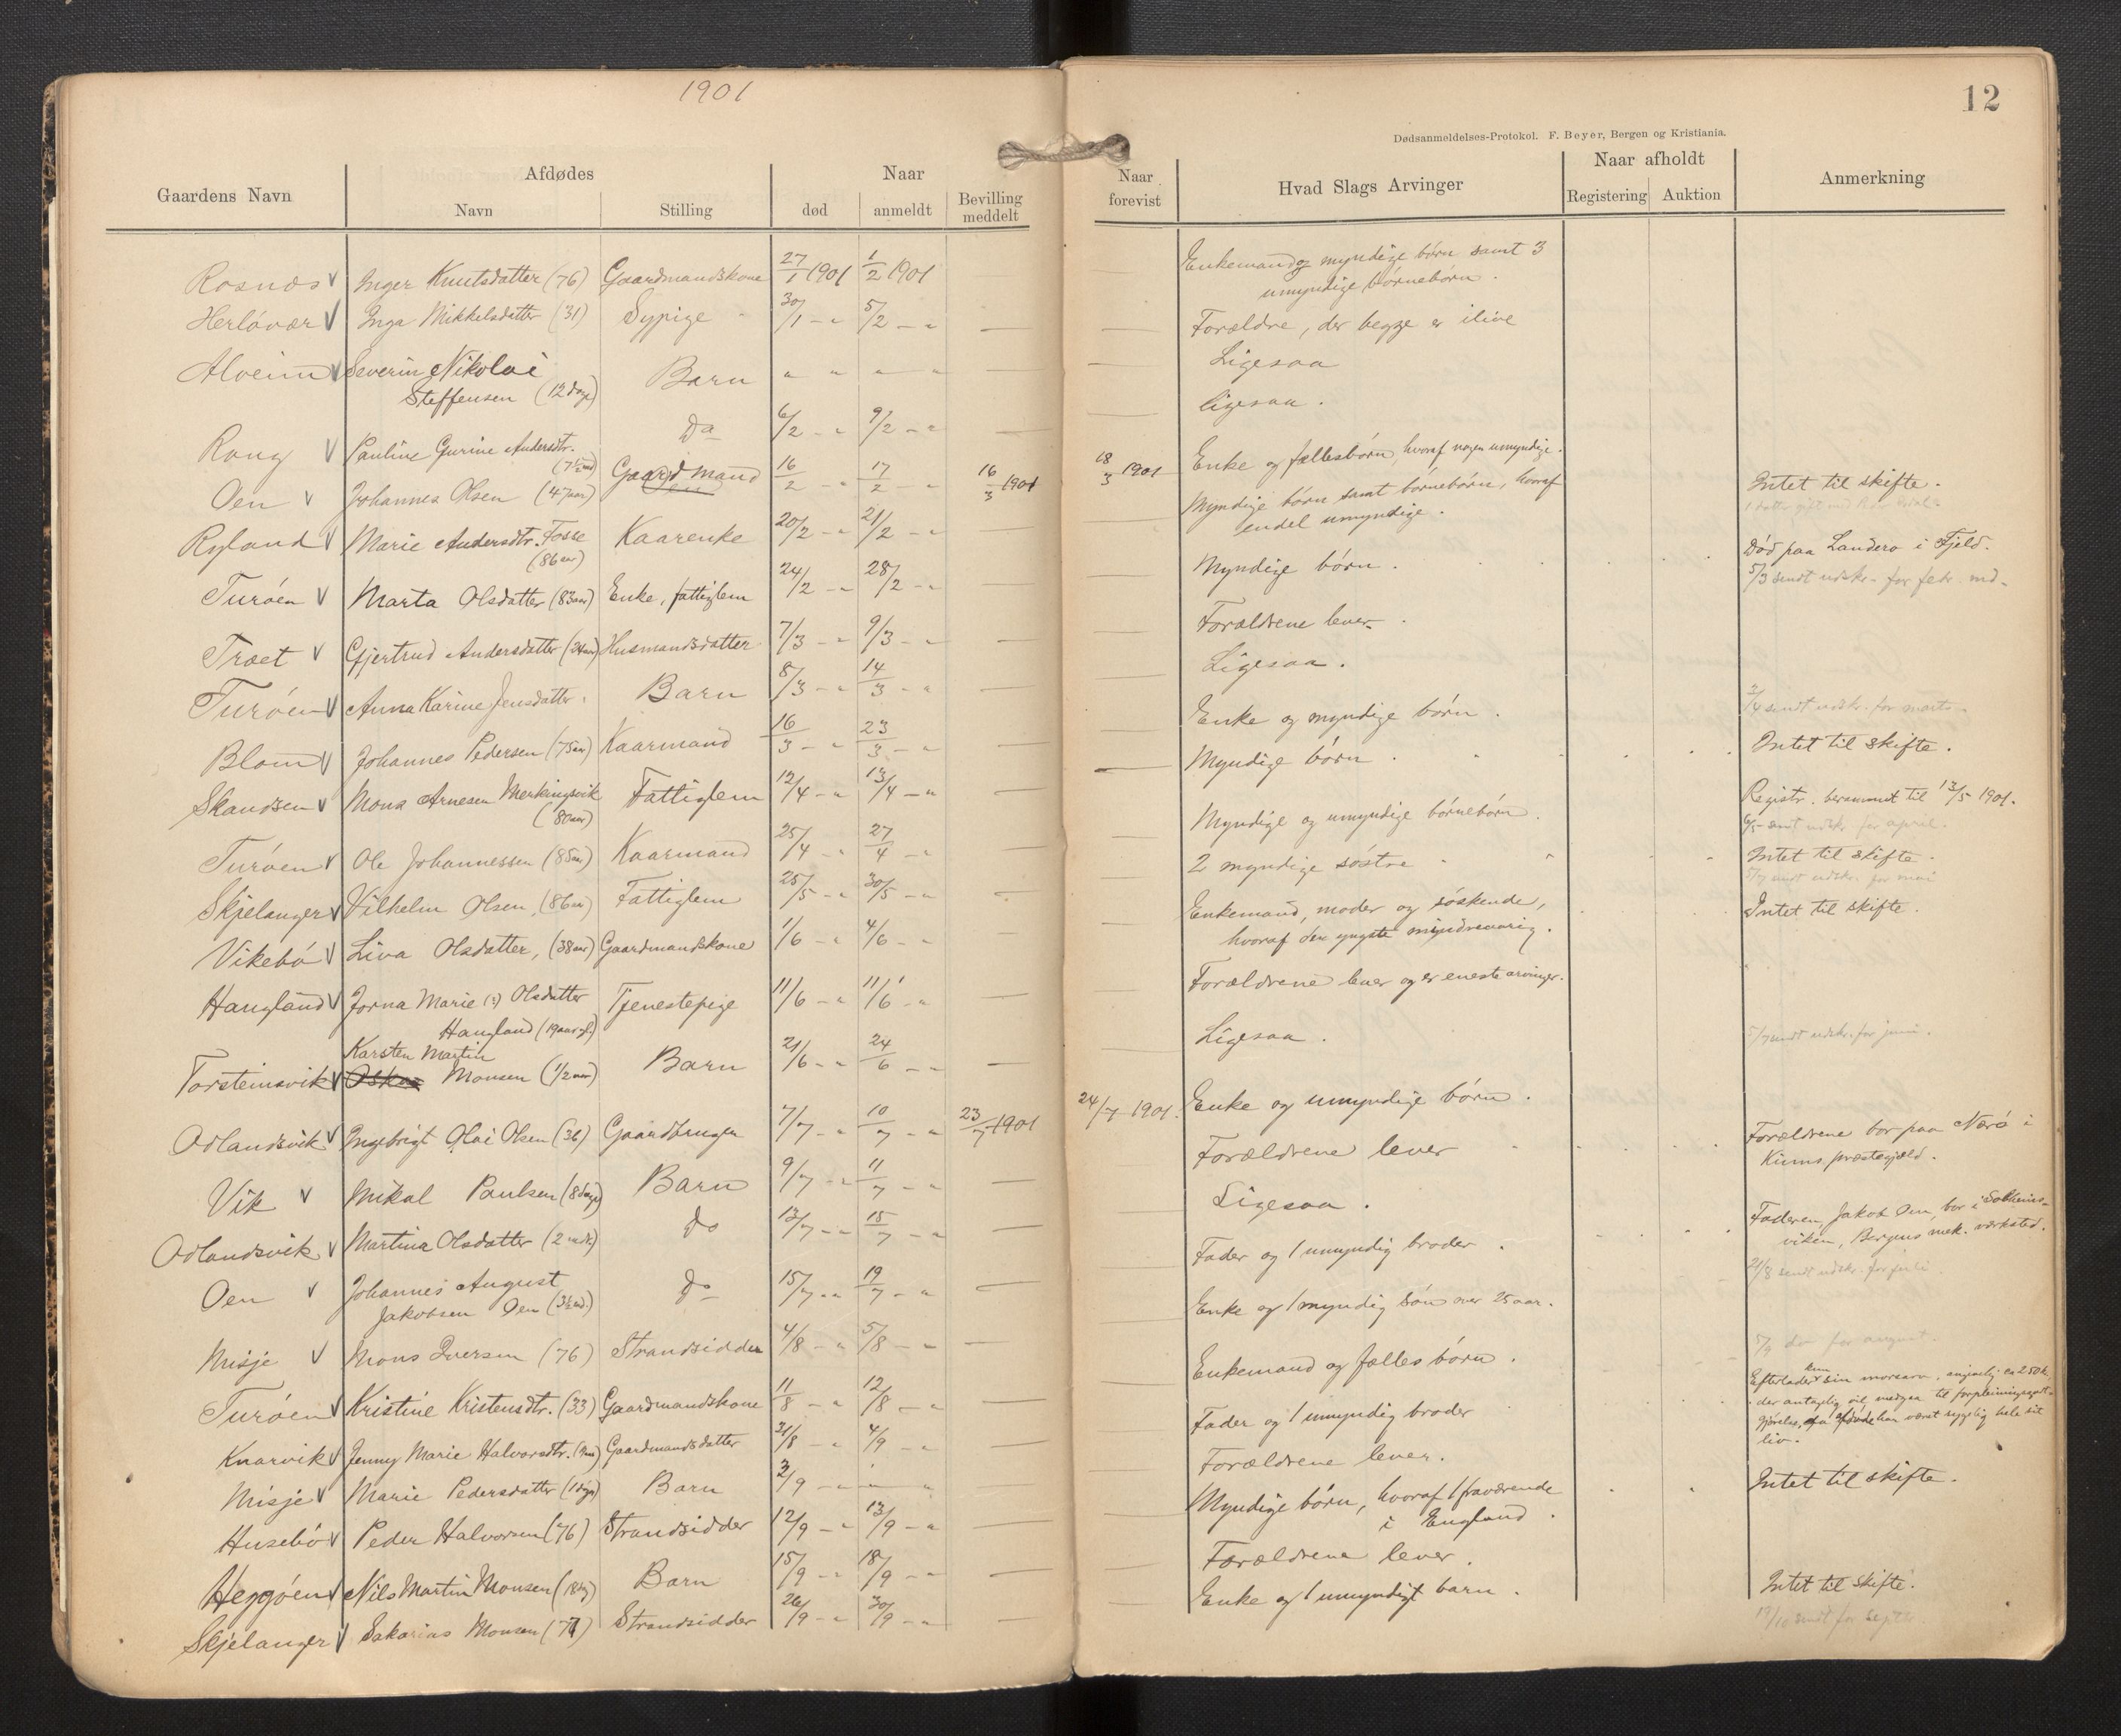 1901
12
Dødsanmeldelses-Protokol. F. Beyer, Bergen og Kristiania.
Gaardens Navn
Afdødes
Navn
Stilling
Naar
død
anmeldt
Bevilling meddelt
Naar forevist
Hvad Slags Arvinger
Naar afholdt
Registering
Auktion
Anmerkning
Rosnæs Inger Knutsdatter (76) Gaardmandskone 27/1 1901 1/2 1901
Herløvær Inga Mikkelsdatter (31) Sypige 30/1 - " 5/2 - " —
Alveim Severin Nikolai
Steffensen (12 dage) Barn " " " " —
Rong Pauline Gurine Andersdtr.
(7½ md) Do 6/2 - " 9/2 - " —
Oen Johannes Olsen (47 aar) Gaardmand 16/2 - " 17/2 - " 16/3 1901
Ryland Marie Andersdtr. Fosse
(86 aar) Kaarenke 20/2 - " 21/2 - " —
Turøen Marta Olsdatter (83 aar) Enke, fattiglem 24/2 - " 28/2 - " —
Træet Gjertrud Andersdatter (24 aar) Husmandsdatter 7/3 - " 9/3 - " —
Turøen Anna Karine Jensdatter Barn 8/3 - " 14/3 - " —
Blom Johannes Pedersen (75 aar) Kaarmand 16/3 - " 23/3 - " —
Skandsen Mons Arnesen Merkingsvik
(80 aar) Fattiglem 12/4 - " 13/4 - " —
Turøen Ole Johannessen (85 aar) Kaarmand 25/4 - " 27/4 - " —
Skjelanger Vilhelm Olsen, (86 aar) Fattiglem 25/5 - " 30/5 - " —
Vikebø Liva Olsdatter, (38 aar) Gaardmandskone 1/6 - " 4/6 - " —
Haugland Jorna Marie (?) Olsdatter
Haugland (19 aar gl.) Tjenestepige 11/6 - " 11/6 - " —
Karsten Martin
Torsteinsvik Oskar Monsen (1/2 aar) Barn 21/6 - " 24/6 - " —
Odlandsvik Ingebrigt Olai Olsen (36) Gaardbruger 7/7 - " 10/7 - " 23/7 1901
Vik Mikal Paulsen (8 dage) Barn 9/7 - " 11/7 - " —
Odlandsvik Martina Olsdatter (2 mdr) Do 13/7 - " 15/7 - " —
Oen Johannes August
Jakobsen Oen (3½ md.) Do 15/7 - " 19/7 - " —
Misje Mons Iversen (76) Strandsidder 4/8 - " 5/8 - " —
Turøen Kristine Kristensdtr. (33) Gaardmandskone 11/8 - " 12/8 - " —
Knarvik Jenny Marie Halvorsdtr. Gaardmandsdatter 31/8 - " 4/9 - " —
Misje Marie Pedersdatter (1 dag) Barn 2/9 - " —
Husebø Peder Halvorsen (76) Strandsidder 12/9 - " 13/9 - " —
Heggøen Nils Martin Monsen (18 dg) Barn 15/9 - " 18/9 - " —
Skjelanger Sakarias Monsen (71) Strandsidder 26/9 - " 30/9 - " —
Enkemand og myndige børn samt 3
umyndige børnebørn.
Forældre, der begge er ilive
Ligesaa
ligesaa.
18/3 1901 Enke og fællesbørn, hvoraf nogen umyndige.
Myndige børn samt børnebørn, hvoraf
endel umyndige.
Intet til skifte.
Myndige børn.
Død paa Landero i Fjeld.
5/3 sendt udskr. for febr. md.
Forældrene lever.
Ligesaa.
Enke og myndige børn.
2/4 sendt udskr. for marts.
Myndige børn.
Intet til skifte.
Myndige og umyndige børnebørn.
Registr. berammet til 13/5 1901.
6/5 sendt udskr. for april.
2 myndige søstre
Intet til skifte.
5/7 sendt udskr. for mai
Enkemand, moder og søskende,
hvoraf den yngste mindreaarig.
Intet til skifte.
Forældrene lever og er eneste arvinger.
Ligesaa.
5/7 sendt udskr. for juni.
24/7 1901. Enke og umyndige børn.
Forældrene lever
Forældrene bor paa Nærø i
Kinns præstegjæld.
Ligesaa.
Fader og 1 umyndig broder.
Faderen, Jakob Oen, bor i Solheims-
viken, Bergens mek. værksted.
21/8 sendt udskr. for juli
Enke og 1 myndig søn over 25 aar.
5/9 do for august.
Enkemand og fælles børn.
Fader og 1 umyndig broder
Efterlader kun sin morsarv,
der antagelig vil medgaa til
har været sygelig hele sit
liv.
Forældrene lever.
Myndige børn, hvoraf 1 fraværende
i England.
Intet til skifte.
Forældrene lever.
Enke og 1 umyndigt barn.
Intet til skifte.
19/10 sendt for septbr.